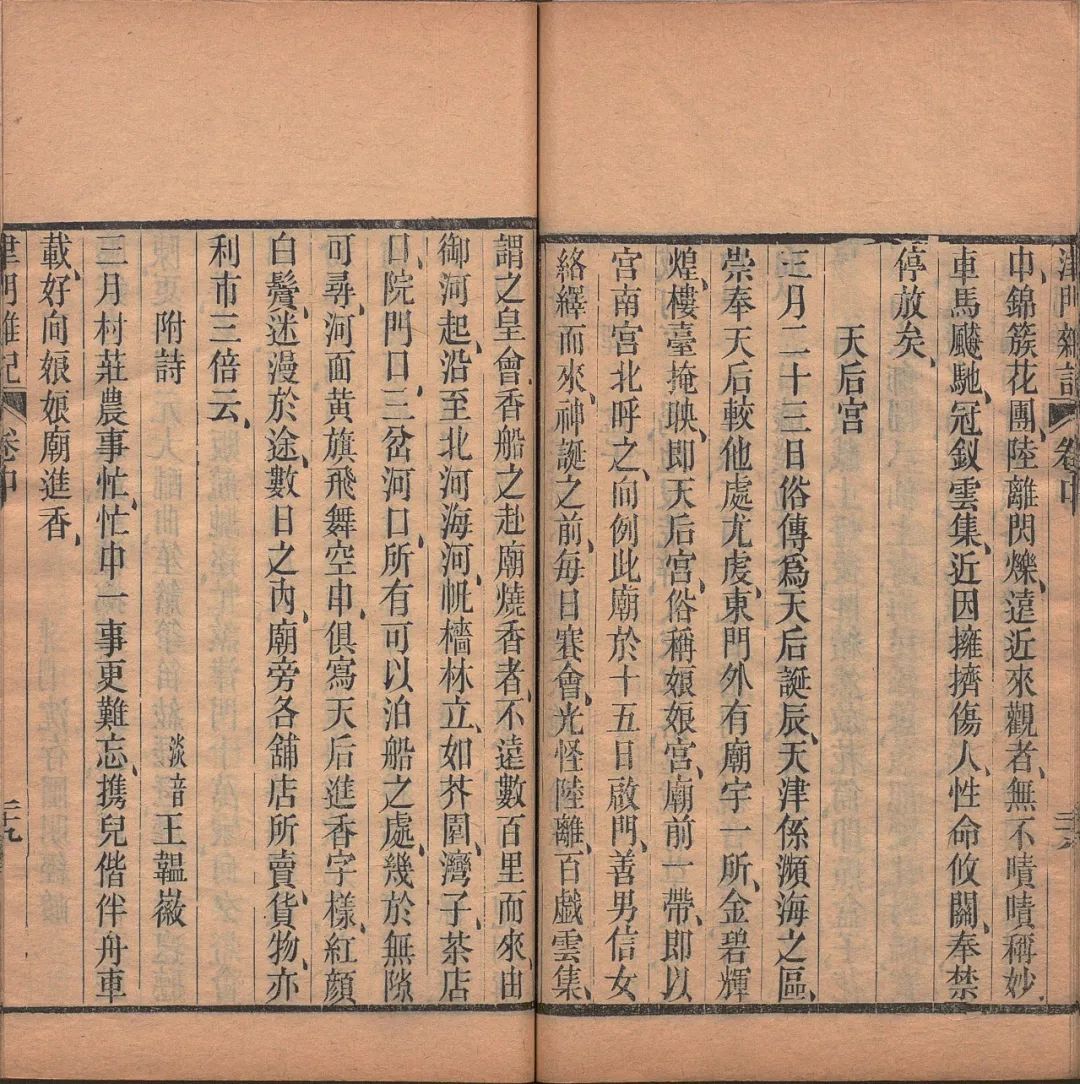 津門雜記 卷中
中、錦簇花團、陸離閃爍、遠近來觀者、無不嘖嘖稱妙
車馬飈馳、冠釵雲集、近因擁擠傷人、性命攸關、奉禁
停放矣、
天后宮
三月二十三日俗傳爲天后誕辰、天津係瀕海之區、
崇奉天后較他處尤虔、東門外有廟宇一所、金碧輝
煌、樓臺掩映、即天后宮、俗稱娘娘宮、廟前一帶、即以
宮南宮北呼之、向例此廟於十五日啟門、善男信女
絡繹而來、神誕之前、每日賽會、光怪陸離、百戲雲集、
謂之皇會、香船之赴廟燒香者、不遠數百里而來、由
御河起、沿至北河海河、帆檣林立、如芥園、灣子、茶店
口、院門口、三岔河口、所有可以泊船之處、幾於無隙
可尋、河面黃旗飛舞空中、俱寫天后進香字樣、紅顏
白鬢、迷漫於途、數日之內、廟旁各舖店所賣、貨物、亦
利市三倍云、
附詩 淡音王韞徽
三月村莊農事忙、忙中一事更難忘、携兒偕伴舟車
載、好向娘娘廟進香、
津門雜記 卷中 二十九